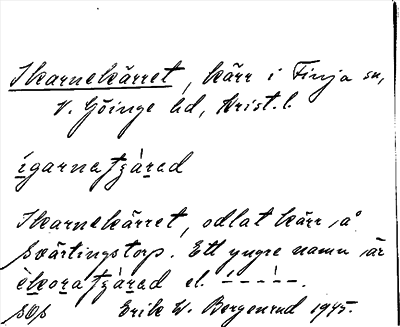 Ikarnekärret, kärr i Finja sn,
V. Göinge hd, Krist. l.
ígarnatjàrad
Ikarnekärret, odlat kärr å
Svärtingstorp. Ett yngre namn är
èkoratjàrad el. – – – – –.
Erik W. Bergenrud 1945.